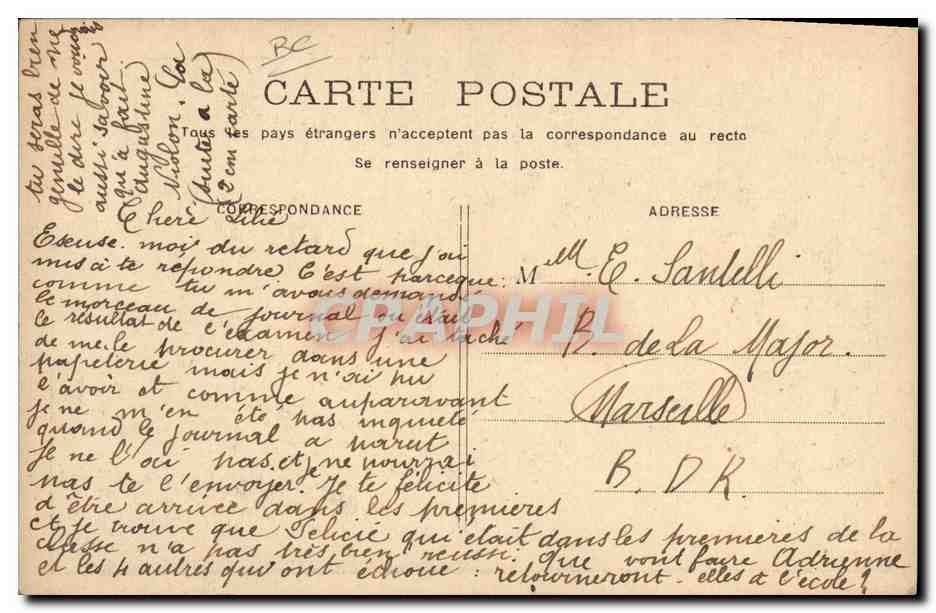 BC
CARTE POSTALE
Tous les pays étrangers n'acceptent pas la correspondance au recto
Se renseigner à la poste.
CORRESPONDANCE
ADRESSE
Cheré Lilié
Excuse. moi du retard que j'ai
mis à te répondre C'est parceque:
comme tu m'avais demandé
le morceau de journal ou était
le résultat de l'examen j'ai taché
de me le procurer dans une
papeterie mais je n'ai pu
l'avoir et comme auparavant
je ne m'en été pas inquieté
quand le journal a parut
Je ne l'ai pas et je ne pourrai
pas te l'envoyer. Je te félicite
d'être arrivée dans les premieres
et je trouve que Felicie qui était dans les premieres de la
classe n'a pas très bien reussi. Que vont faire Adrienne
et les 4 autres qui ont échoué: retourneront-elles à l'école?
tu seras bien
gentille de me
le dire je voudrais
aussi savoir
qu'a fait
Augustine
Violon. La
(suite a la
2em carte)
M Ml. E. Santelli
R. de la Major.
Marseille
B. D R.
CPAPHIL